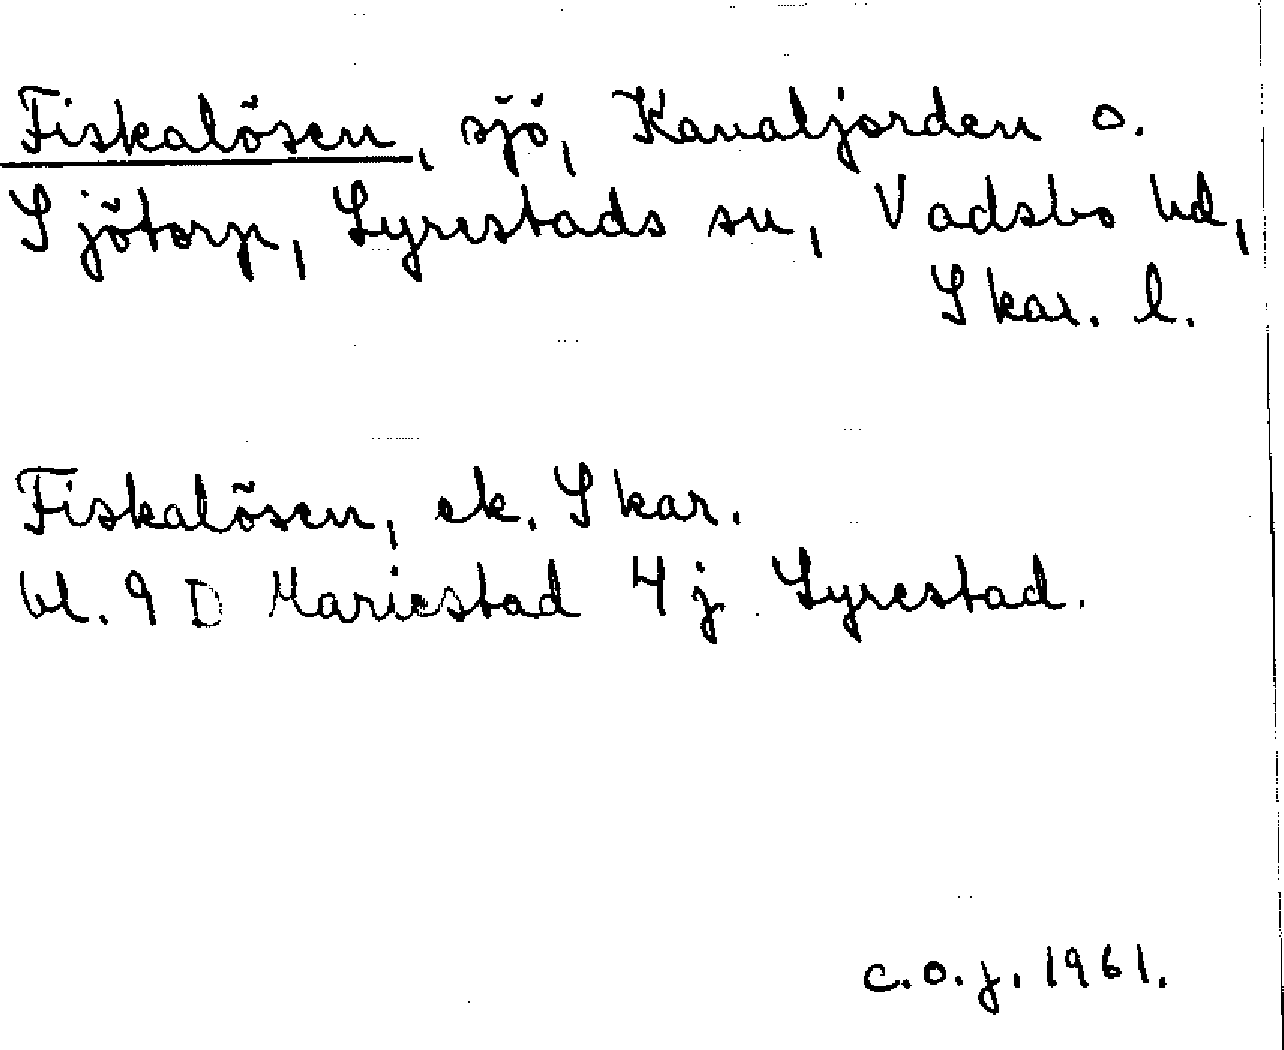 Fiskalösen, sjö, Kanaljorden o.
Sjötorp, Lyrestads sn, Vadsbo hd,
Skar. l.
Fiskalösen, ek. Skar.
bl. 9 D Mariestad 4 j Lyrestad.
c.o.j. 1961.